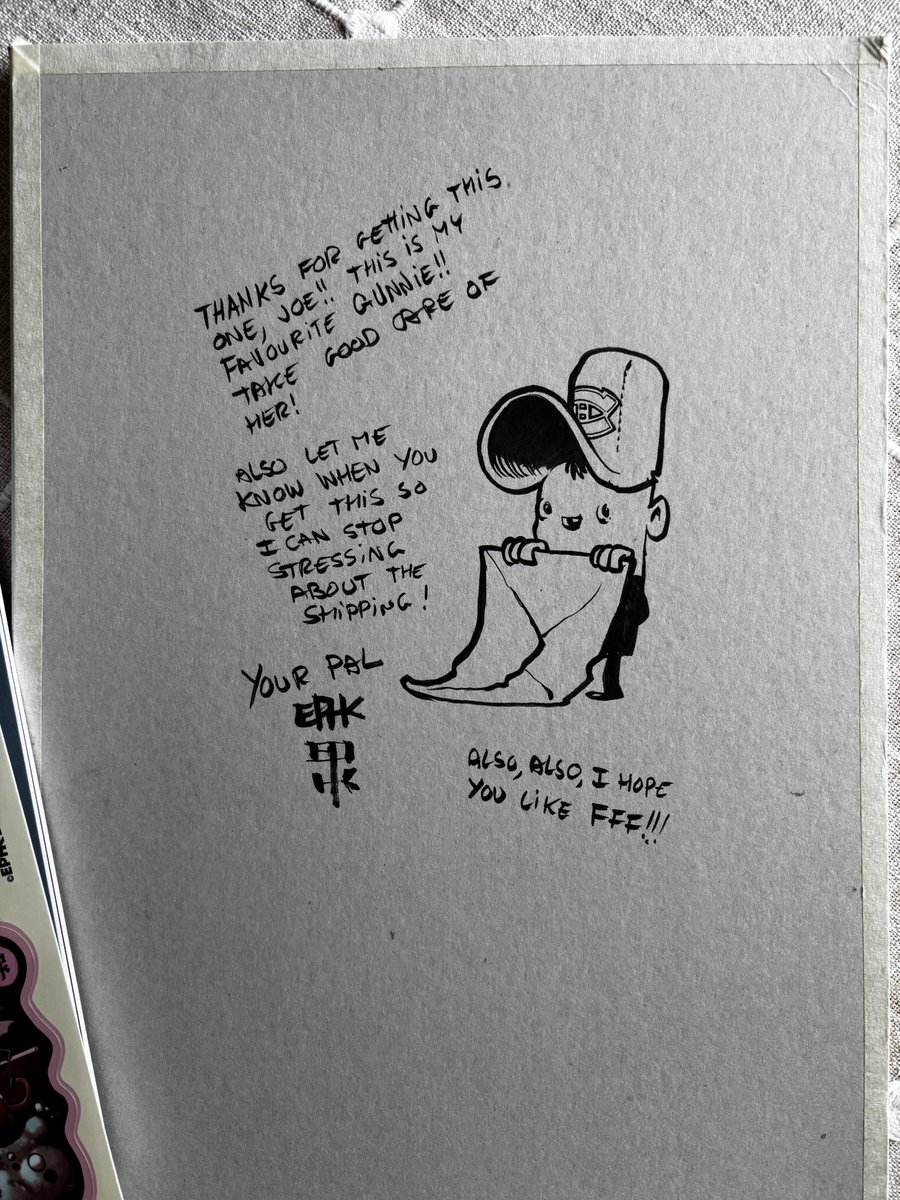 THANKS FOR GETTING THIS
ONE, JOE!! THIS IS MY
FAVOURITE GUNNIE!!
TAKE GOOD CARE OF
HER!
ALSO LET ME
KNOW WHEN YOU
GET THIS SO
I CAN STOP
STRESSING
ABOUT THE
SHIPPING!
YOUR PAL
EPHK
ALSO, ALSO, I HOPE
YOU LIKE FFF!!!
©EPHK